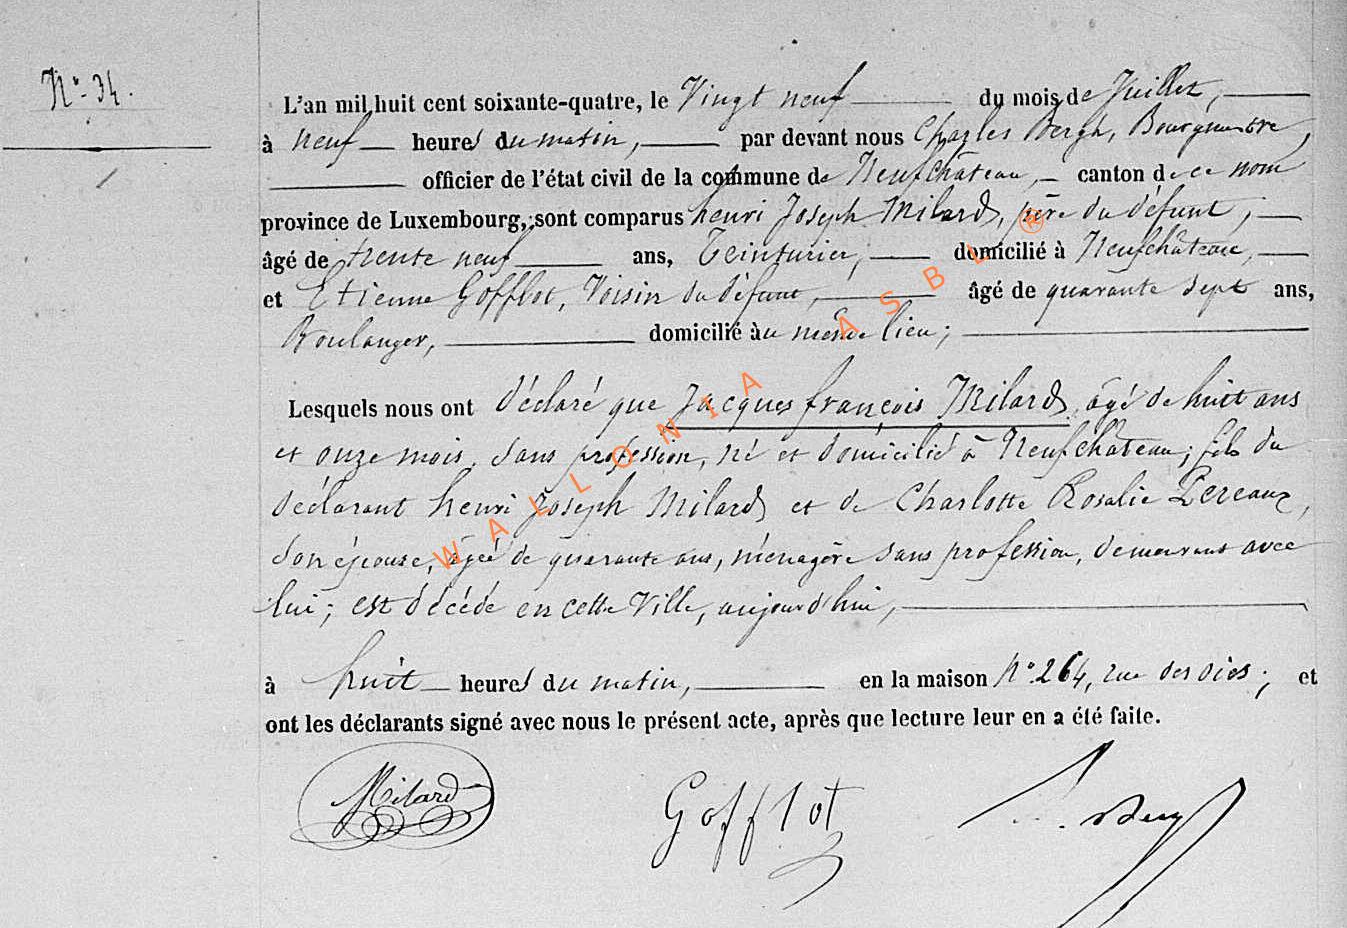 N° 34.
L'an mil huit cent soixante-quatre, le Vingt neuf du mois de Juillet,
à neuf heures du matin, par devant nous Charles Bergh, Bourgmestre,
officier de l'état civil de la commune de Neufchâteau, canton de ce nom
province de Luxembourg, sont comparus henri Joseph Milard, père du défunt,
âgé de trente neuf ans, Teinturier, domicilié à Neufchâteau,
et Etienne Gofflot, Voisin du défunt, âgé de quarante sept ans,
Boulanger, domicilié au même lieu;
Lesquels nous ont déclaré que Jacques françois Milard, âgé de huit ans
et onze mois, sans profession, né et domicilié à Neufchâteau; fils du
déclarant henri Joseph Milard et de Charlotte Rosalie Pereaux,
son épouse, âgée de quarante ans, ménagère sans profession, demeurant avec
lui; est décédé en cette Ville, aujourd'hui,
à huit heures du matin, en la maison N° 264, rue des ; et
ont les déclarants signé avec nous le présent acte, après que lecture leur en a été faite.
Milard Gofflot
WALLONIA ASBL ®